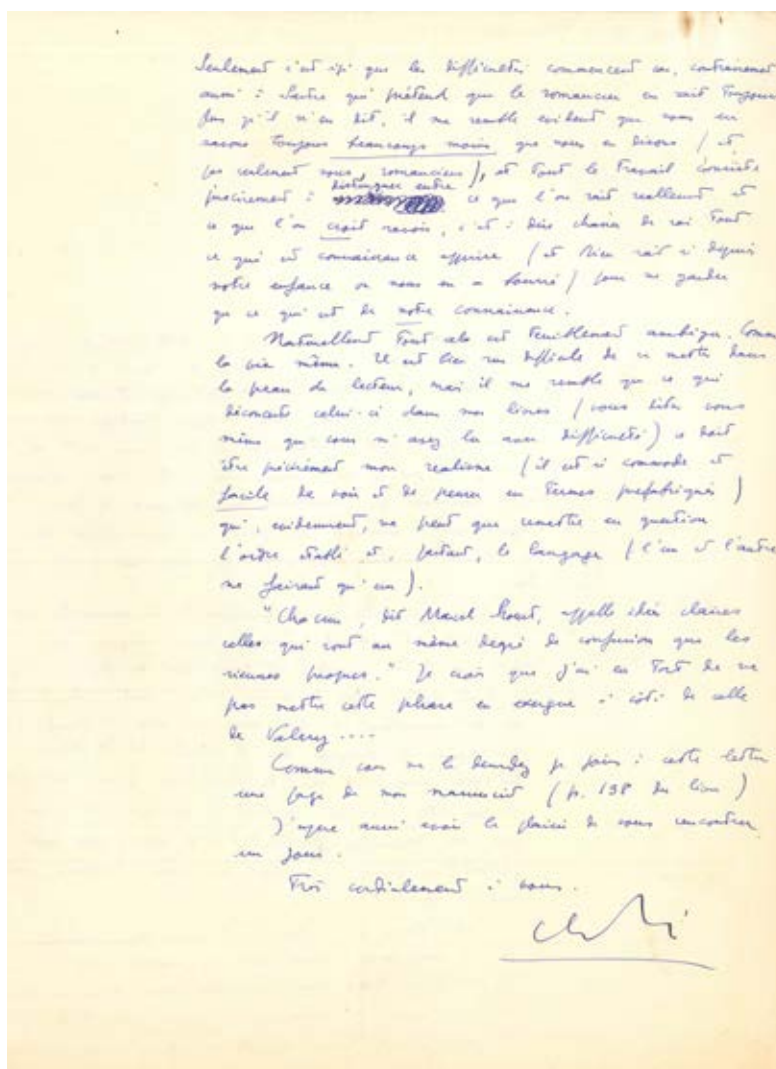 Seulement c'est ici que les difficultés commencent car, contrairement
aussi à Sartre qui prétend que le romancier en sait toujours
plus qu'il n'en dit, il me semble évident que nous en
savons toujours beaucoup moins que nous en disons (et
pas seulement nous, romanciers), et tout le travail consiste
précisément à distinguer entre ce que l'on sait réellement et
ce que l'on croit savoir, c'est à dire chasser de soi tout
ce qui est connaissance apprise (et Dieu sait si depuis
notre enfance on nous en a bourré) pour ne garder
que ce qui est de notre connaissance.
Naturellement tout cela est terriblement ambigu. Comme
la vie même. Il est bien sûr difficile de se mettre dans
la peau du lecteur, mais il me semble que ce qui
déconcerte celui-ci dans mes livres (vous dites vous
même que vous m'avez lu avec difficulté) ce doit
être précisément mon réalisme (il est si commode et
facile de voir et de penser en termes préfabriqués)
qui, évidemment, ne peut que remettre en question
l'ordre établi et, partant, le langage (l'un et l'autre
ne faisant qu'un).
"Chacun, dit Marcel Proust, appelle idées claires
celles qui sont au même degré de confusion que les
siennes propres." Je crois que j'ai eu tort de ne
pas mettre cette phrase en exergue à côté de celle
de Valéry....
Comme vous me le demandez je joins à cette lettre
une page de mon manuscrit (p. 138 du livre)
J'espère aussi avoir le plaisir de vous rencontrer
un jour.
Très cordialement à vous.